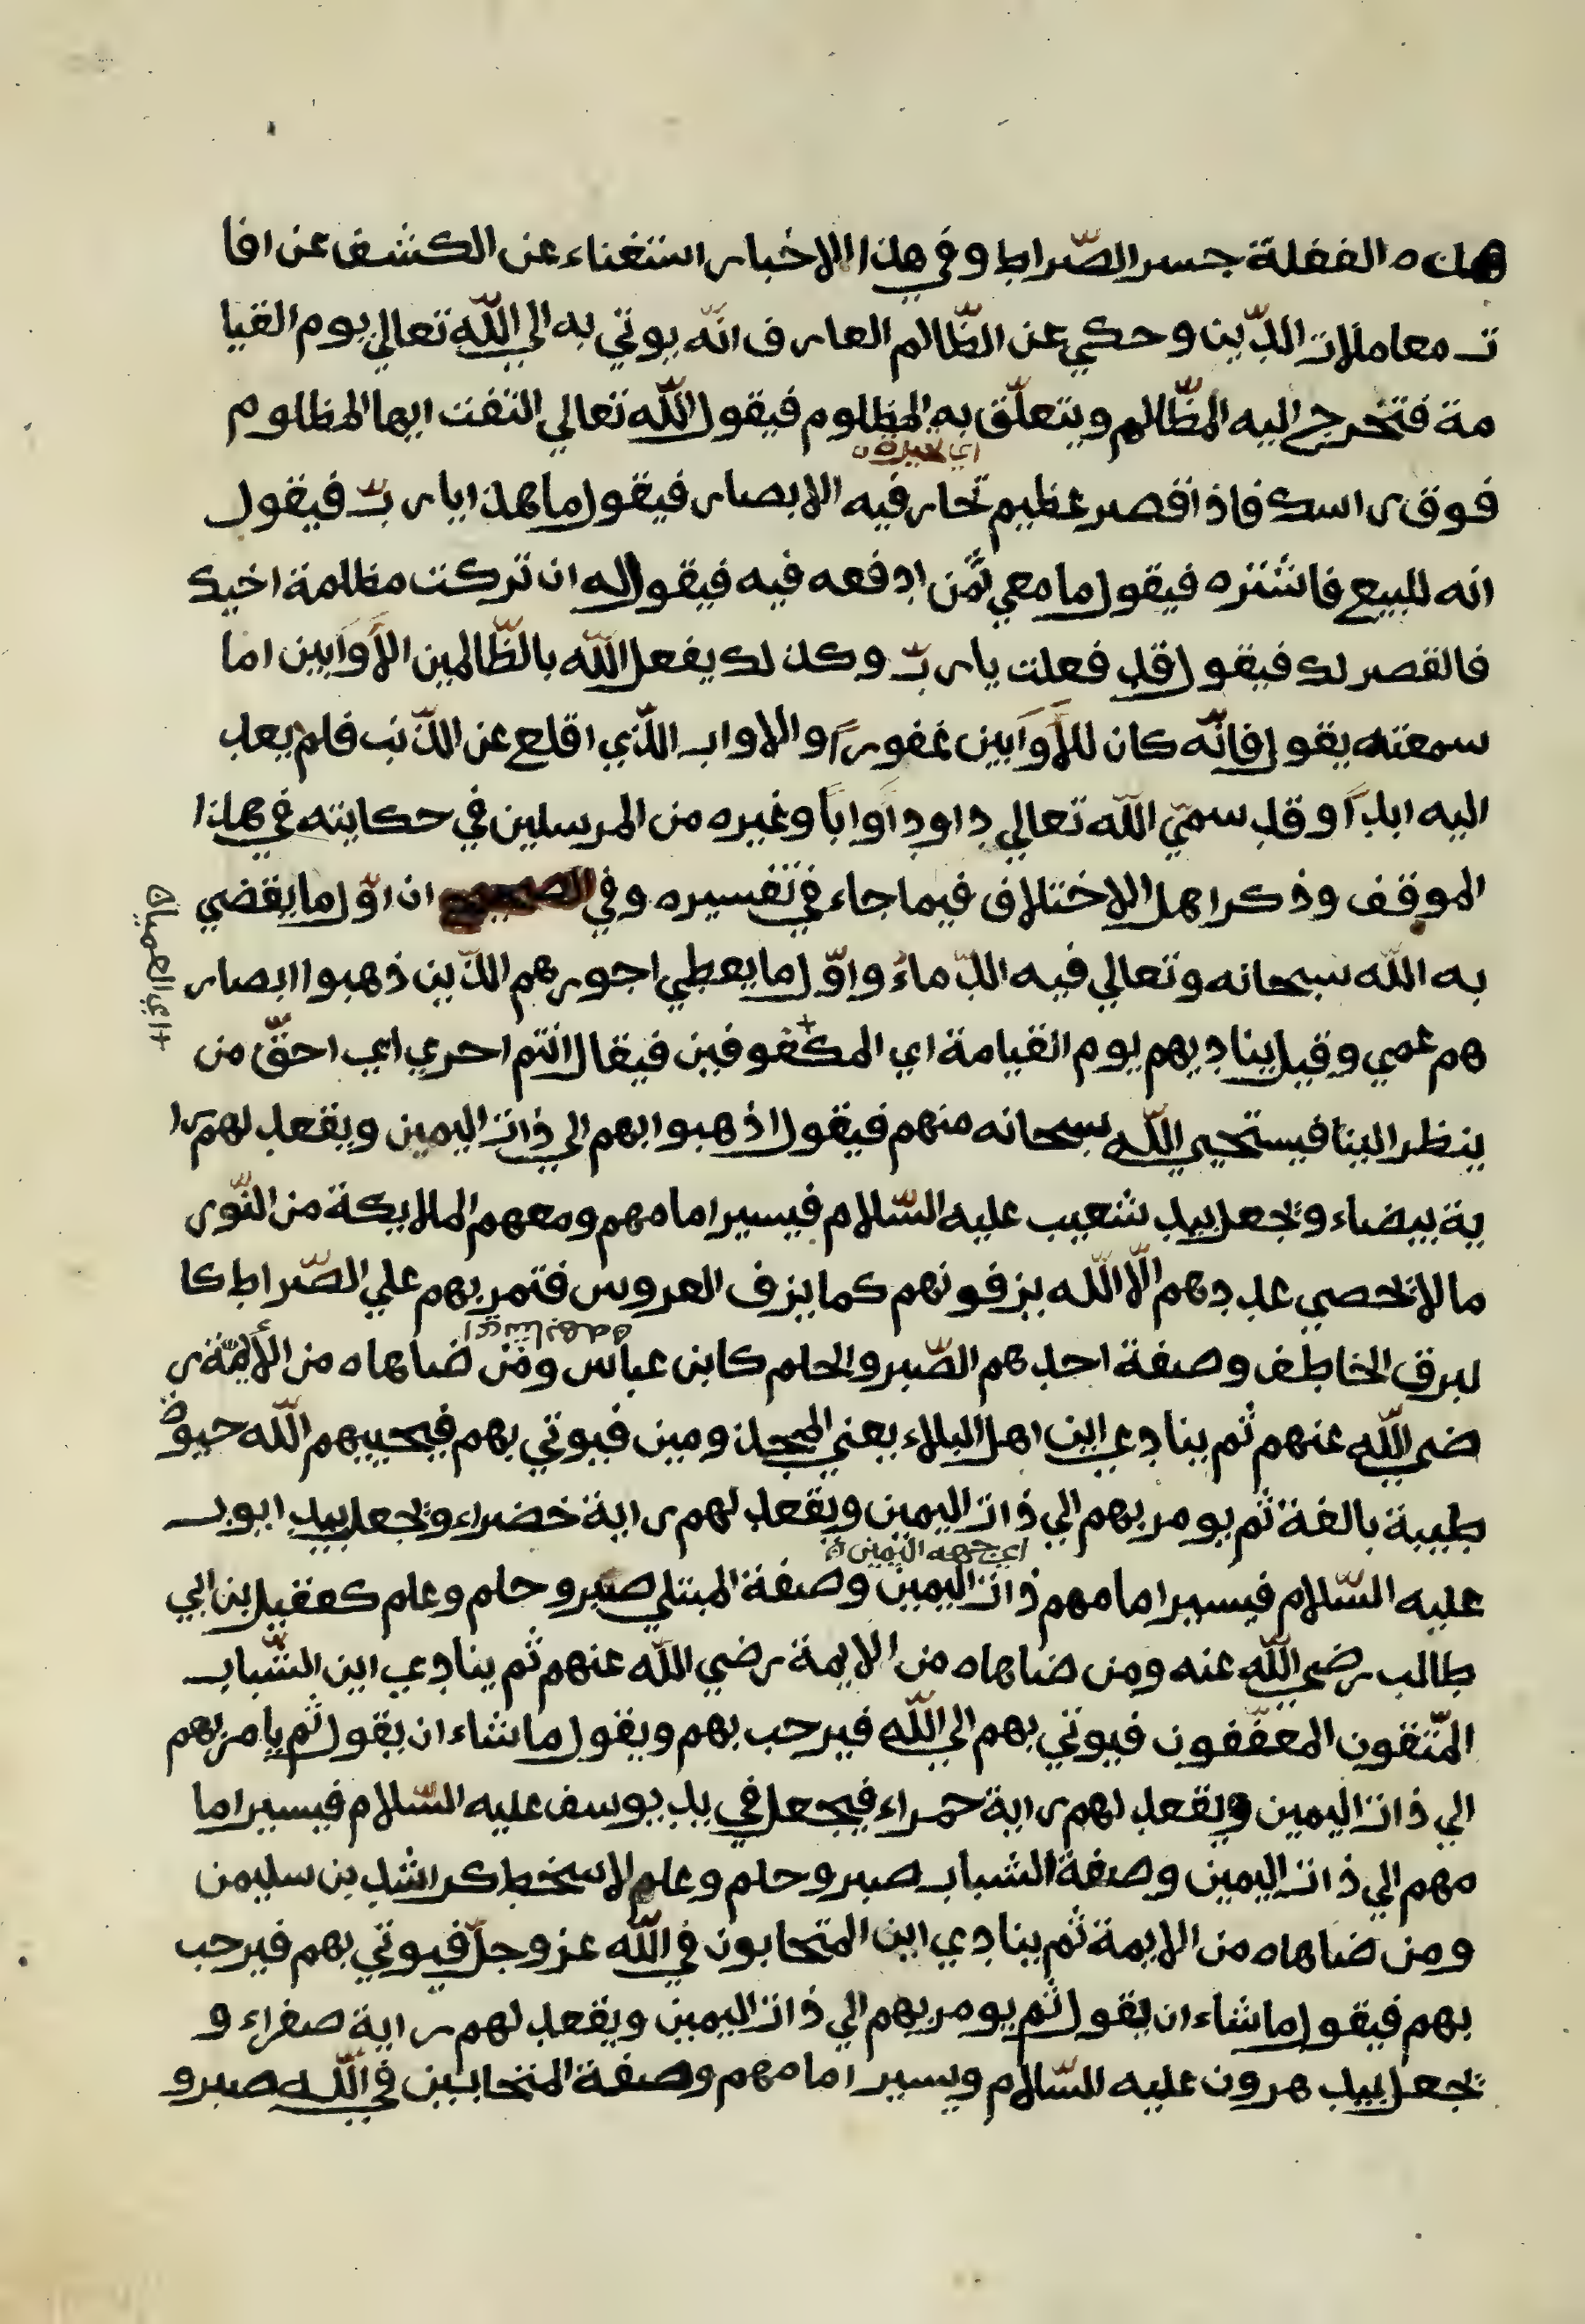 هذه الغفلة جسر الصّراط وفي هذا الاخبار استغناء عن الكشف عن افا
ت معاملات الدّين وحكي عن الظّالم العارف انّه يوتي به الي اللّه تعالي يوم القيا
مة فتخرج اليه المظّالم ويتعلّق به المظلوم فيقول اللّه تعالي التفت ايها المظلوم
فوق راسك فاذا قصر عظيم تحار فيه الابصار فيقول ما هذا يا ربّ فيقول
انه للبيع فاشتره فيقول ما معي ثمن ادفعه فيه فيقول له ان تركت مظلمة اخيك
فالقصر لك فيقول قد فعلت يا ربّ وكذلك يفعل اللّه بالظّالمين الأوّابين اما
سمعته يقول فانّه كان للأوّابين غفوراً والاواب الذّي اقلع عن الذّنب فلم يعد
اليه ابداً وقد سميّ اللّه تعالي داود اوّاباً وغيره من المرسلين في حكايته في هذا
الموقف وذكر اهل الاختلاف فيما جاء في تفسيره وفي الصحيح ان اوّل ما يقضي
به اللّه سبحانه وتعالي فيه الدّماءُ واوّل ما يعطي اجورهم الذّين ذهبوا ابصار
هم عمي وقيل يناديهم يوم القيامة اي المكفوفين فيقال انتم احري اي احقّ من
ينظر الينا فيستحيي اللّه سبحانه منهم فيقول اذهبوا بهم الي ذات اليمين ويقعد لهم را
ية بيضاء وتجعل بيد شعيب عليه السّلام فيسير امامهم ومعهم الملايكة من النّور
ما لا يحصي عددهم الّا اللّه يزفونهم كما يزف العروس فتمر بهم علي الصّراط كا
لبرق الخاطف وصفة احدهم الصّبر والحلم كابن عباس ومن ضاهاه من الأيمّة ر
ضي اللّه عنهم ثم ينادي اين اهل البلاء يعني المجذومين فيوتي بهم فيحييهم اللّه حيوة
طيبة بالغة ثم يومر بهم الي ذات اليمين ويقعد لهم راية خضراء وتجعل بيد ايوب
عليه السّلام فيسير امامهم ذات اليمين وصفة المبتلي صبر وحلم وعلم كعقيل بن ابي
طالب رضي اللّه عنه ومن ضاهاه من الايمة رضي اللّه عنهم ثم ينادي اين الشّباب
المتّقون المعفّفون فيوتي بهم الي اللّه فيرحب بهم ويقول ما شاء ان يقول ثم يامر بهم
الي ذات اليمين ويقعد لهم راية حمراء فيجعل في يد يوسف عليه السّلام فيسير اما
مهم الي ذات اليمين وصفة الشباب صبر وحلم وعلم لا سخط كراشد بن سليمن
ومن ضاهاه من الايمة ثم ينادي اين المتحابون في اللّه عز وجلّ فيوتي بهم فيرحب
بهم فيقول ما شاء ان يقول ثم يومر بهم الي ذات اليمين ويقعد لهم راية صفراء و
تجعل بيد هرون عليه السّلام ويسير امامهم وصفة المتحابين في اللّه صبر و
اي جهة اليمين
+ اي العميان